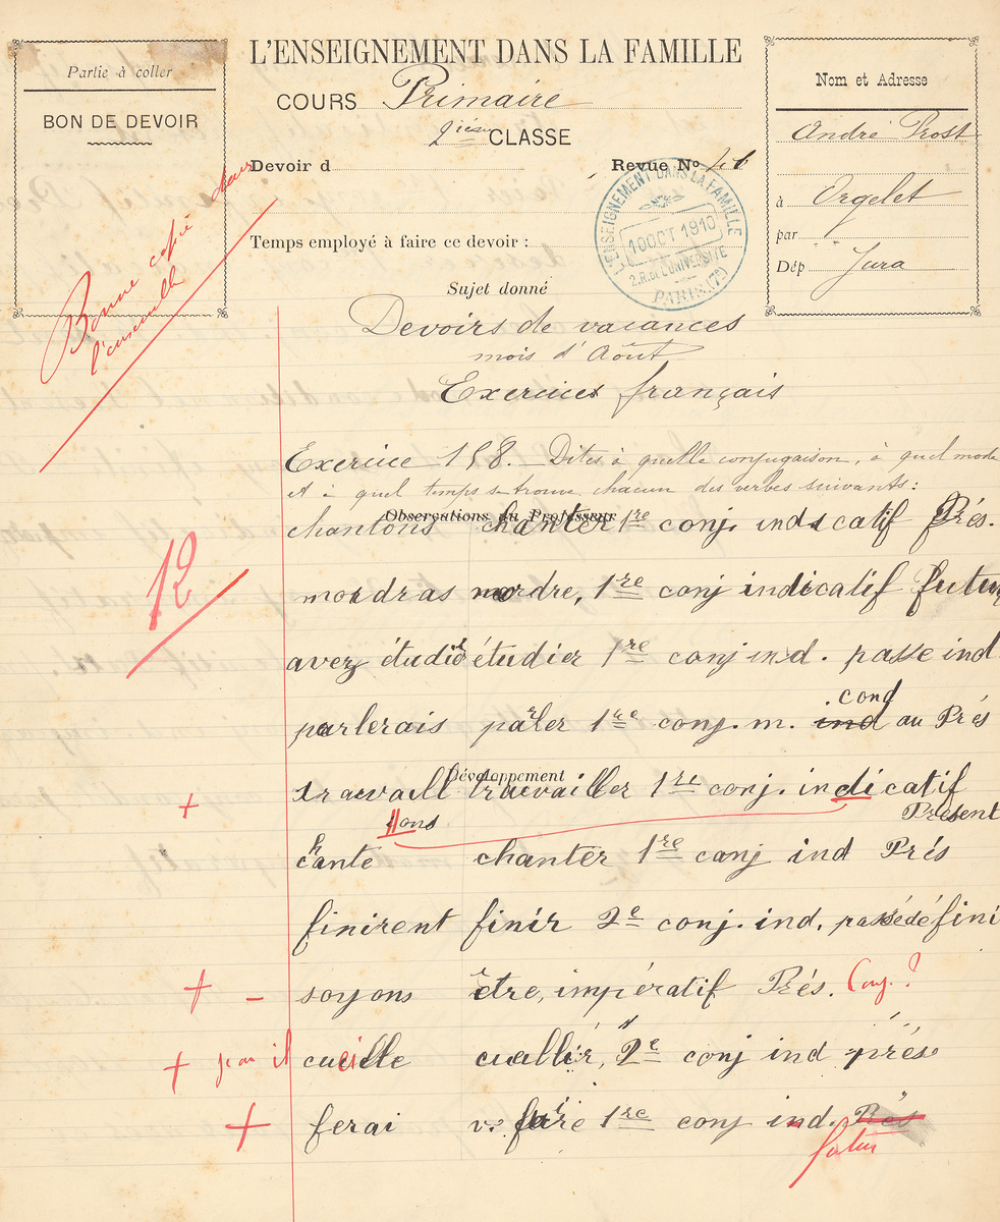 Partie à coller
BON DE DEVOIR
L'ENSEIGNEMENT DANS LA FAMILLE
COURS Primaire
2ième CLASSE
Devoir d
Revue No
Temps employé à faire ce devoir :
L'ENSEIGNEMENT DANS LA FAMILLE
10 OCT 1910
2.R. DE L'UNIVERSITE
PARIS (7e)
Nom et Adresse
André Prost
à Orgelet
par
Dép Jura
Bonne copie dans
l'ensemble
Sujet donné
Devoirs de vacances
mois d'Août
Exercices français
Exercice 158. Dites à quelle conjugaison, à quel mode
et à quel temps se trouve chacun des verbes suivants :
Observations du Professeur
chantons chanter 1re conj. indicatif Prés.
12
mordras mordre, 1re conj indicatif futur
avez étudié étudier 1re conj ind. passe ind
cond
parlerais parler 1re conj. m. ind au Prés
Développement
+ travaill travailler 1re conj. indicatif
llons Présent
chante chanter 1re conj ind Prés
finirent finir 2e conj. ind. passé défini
+ - soyons être, impératif Prés. Conj. ?
+ il cueille cuellir, 2e conj ind prés
+ ferai faire 1re conj ind. Prés
futur